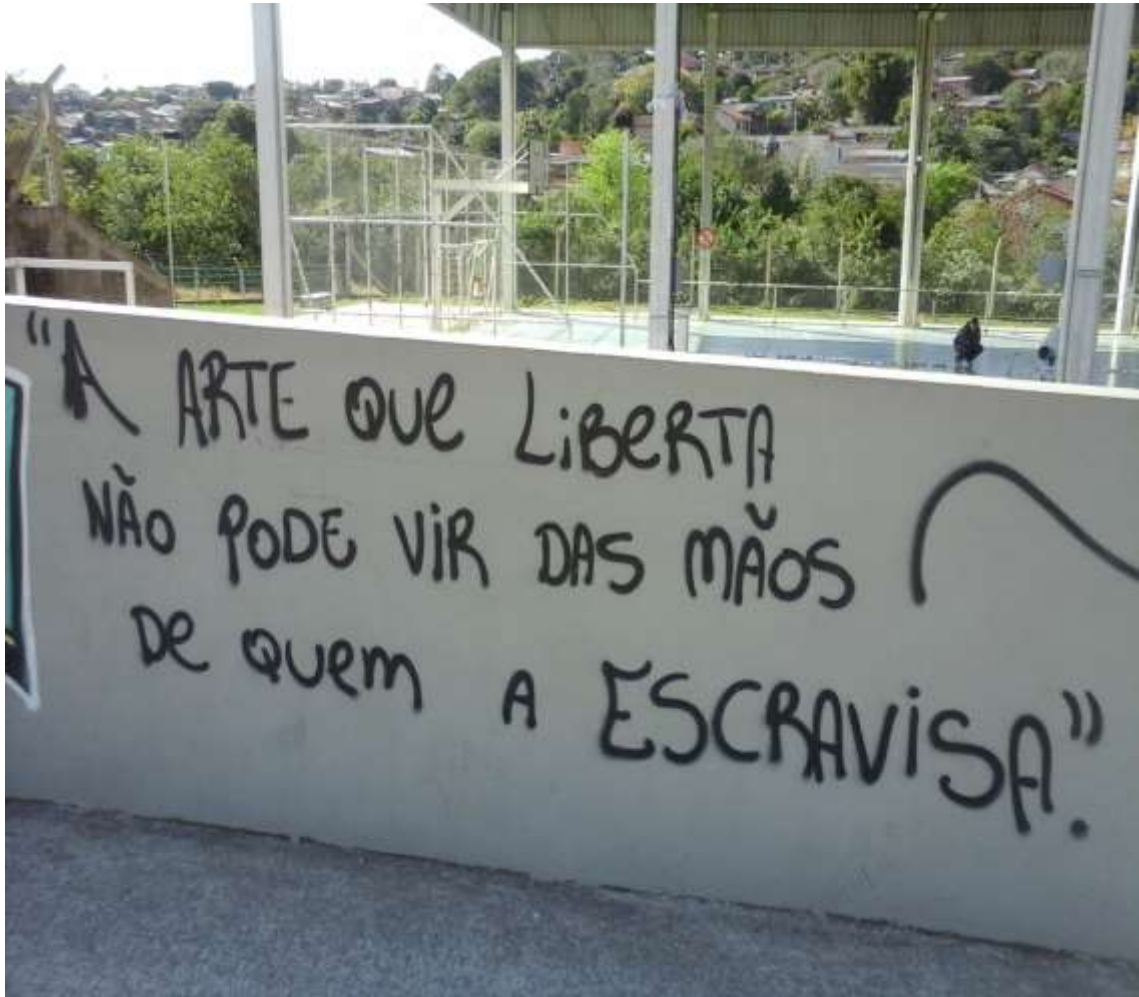 "A ARTE QUE LiBeRTA
NÃO PODE ViR DAS MÃOS
De QUem A ESCRAViSA".